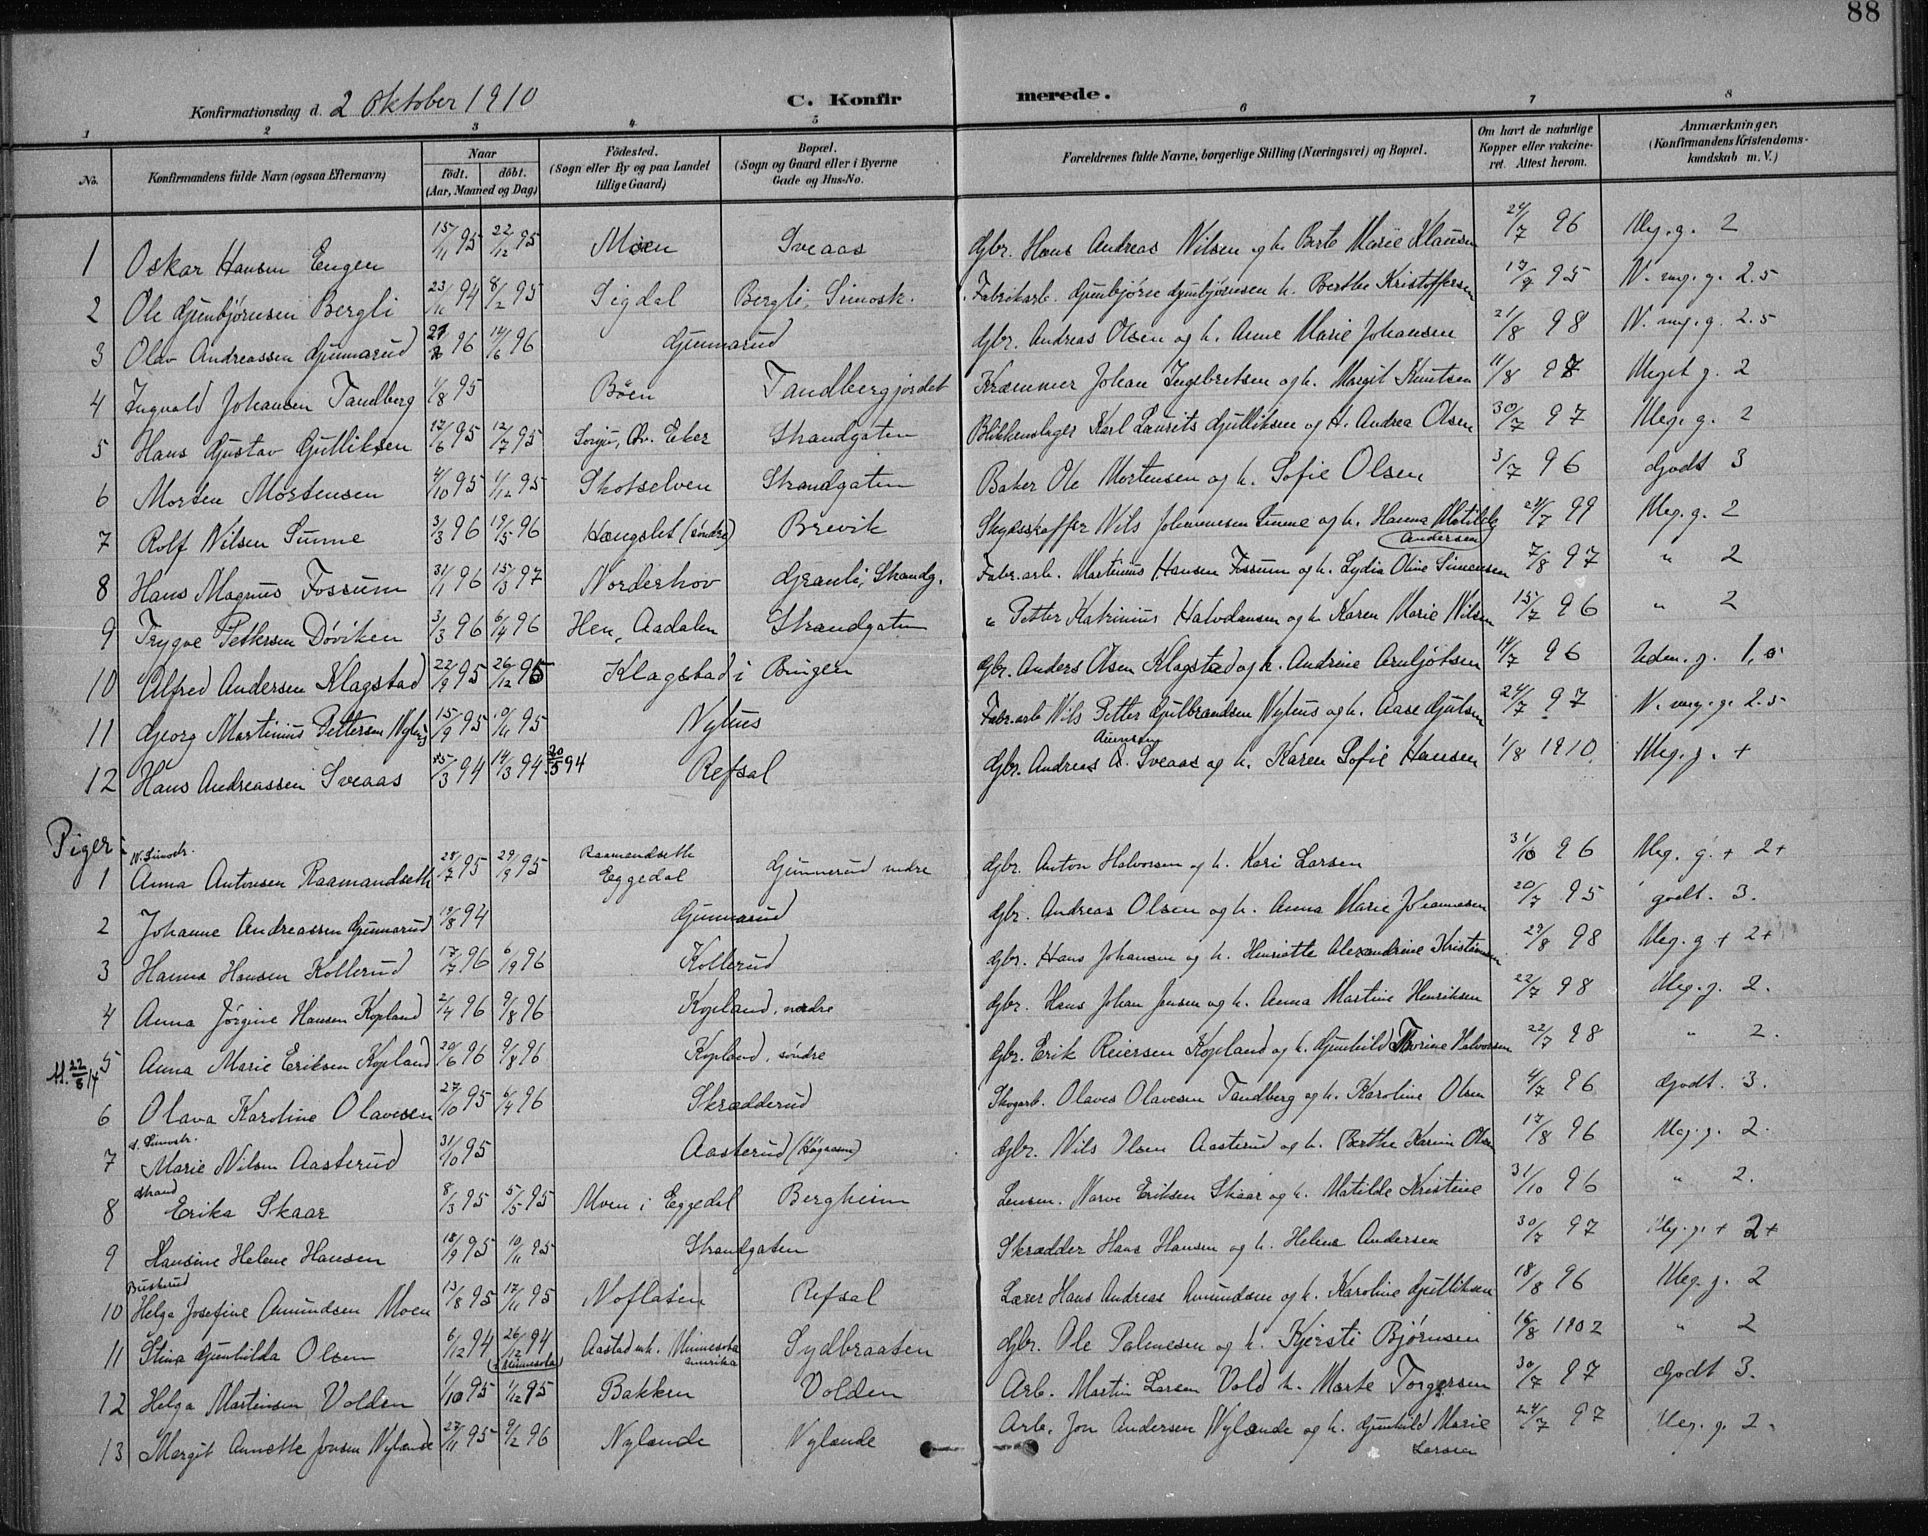 88
Konfirmationsdag d. 2 Oktober 1910 C. Konfirmerede.
1 2 3 4 5 6 7 8
No. Konfirmandens fulde Navn (ogsaa Efternavn) Naar født. døbt. (Aar, Maaned og Dag) Fødested. (Sogn eller By og paa Landet tillige Gaard) Bopæl. (Sogn og Gaard eller i Byerne Gade og Hus-No. Forældrenes fulde Navne, borgerlige Stilling (Næringsvei) og Bopæl. Om havt de naturlige Kopper eller vakcineret. Attest herom. Anmærkninger. (Konfirmandens Kristendomskundskab m. V.)
1 Oskar Hansen Engen 15/11 95 22/12 95 Moen Sveaas Gbr. Hans Andreas Nilsen og h. Berte Marie Klausen 24/7 96 Meg. g. 2
2 Ole Gunbjørnsen Bergli 23/11 94 8/2 95 Sigdal Bergli, Simosk. Fabrikarb. Gunbjørn Gunbjørnsen h. Berthe Kristoffersen 95 N. meg. g. 2.5
3 Olav Andreassen Gunnarud 96 14/6 96 Gunnarud Gbr. Andreas Olsen og h. Anne Marie Johansen 21/8 98 N. meg. g. 2.5
4 Ingvald Johansen Tandberg 1/8 95 Bøen Tandbergjordet Kræmmer Johan Ingebretsen og h. Margit Knutsen 11/8 97 Meget g. 2
5 Hans Gustav Gulliksen 17/6 95 12/7 95 Eker Strandgaten Blikkenslager Karl Laurits Gulliksen og h. Andrea Olsen 30/7 97 Meg. g. 2
6 Morten Mortensen 4/10 95 1/12 95 Skotselven Strandgaten Baker Ole Mortensen og h. Sofie Olsen 3/7 96 Godt 3
7 Rolf Nilsen Sunne 3/3 96 19/5 96 Hængslet (søndre) Brevik Skydsskaffer Nils Johannesen Sunne og h. Hanna Matilde Andersen 24/7 99 Meg. g. 2
8 Hans Magnus Fossum 31/1 96 15/3 97 Norderhov Granli, Strandg. Fabr.arb. Martinius Hansen Fossum og h. Lydia Oline Simensen 7/8 97 " 2
9 Trygve Pettersen Døviken 3/3 96 6/4 96 Hen, Aadalen Strandgaten " Petter Katrinius Halvdansen og h. Karen Marie Nilsen 15/7 96 " 2
10 Alfred Andersen Klagstad 22/9 95 26/12 95 Klagstad i Bingen Gbr. Anders Olsen Klagstad og h. Andrine Arnljøtsen 14/7 96 Udm. g. 1,5
11 Georg Martinius Pettersen Nyhus 15/9 95 10/11 95 Nyhus Fabr.arb Nils Petter Gulbrandsen Nyhus og h. Aase Gulsen 24/7 97 N. meg. g. 2.5
12 Hans Andreassen Sveaas 25/3 94 14/3 94 20/5 94 Refsal Gbr. Andreas A. Sveaas og h. Karen Sofie Hansen 1/8 1910. Meg. g. +
Piger:
1 N. Simostr. Anna Antonsen Raamandseth 28/7 95 29/9 95 Raamandseth Eggedal Gunnerud nedre Gbr. Anton Halvorsen og h. Kari Larsen 31/10 96 Meg. g. + 2+
2 Johanne Andreassen Gunnarud 19/8 94 Gunnarud Gbr. Andreas Olsen og h. Anna Marie Johannesen 20/7 95 godt. 3.
3 Hanna Hansen Kollerud 17/7 96 6/9 96 Kollerud Gbr. Hans Johansen og h. Henriette Alexandrine Kristiansen 23/8 98 Meg. g + 2+
4 Anna Jørgine Hansen Kopland 2/4 96 9/8 96 Kopland, nordre Gbr. Hans Johan Jensen og h. Anna Martine Henriksen 22/7 98 Meg. g. 2.
5 Anna Marie Eriksen Kopland 20/6 96 9/8 96 Kopland, søndre Gbr. Erik Reiersen Kopland og h. Gunhild Thorine Halvorsen 22/7 98 " 2.
6 Olava Karoline Olavesen 27/10 95 6/4 96 Skrædderud Skogarb. Olaves Olavesen Tandberg og h. Karoline Olsen 4/7 96 Godt. 3.
7 s. Simostr. Marie Nilsen Aasterud 31/10 95 Aasterud (Høgaasen) Gbr. Nils Olsen Aasterud og h. Berthe Karine Olsen 17/8 96 Meg. g. 2.
8 Strand Erika Skaar 8/3 95 5/5 95 Moen i Eggedal Bergheim Lensm. Narve Eriksen Skaar og h. Matilde Kristine 31/10 96 " 2.
9 Hansine Helene Hansen 18/9 95 10/11 95 Strandgaten Skrædder Hans Hansen og h. Helene Andersen 30/7 97 Meg. g. + 2+
10 Buskerud Helga Josefine Amundsen Moen 13/8 95 17/11 95 Noflaten Refsal Lærer Hans Andreas Amundsen og h. Karoline Gulliksen 18/8 96 Meg. g. 2
11 Stina Gunhilda Olsen 6/12 94 26/12 94 (i Minnesota) Aastad mh. Minnesota Amerika Sydbraaten Gbr. Ole Palmesen og h. Kjersti Bjørnsen 16/8 1902 " 2
12 Helga Martinsen Volden 1/10 95 1/12 95 Bakken Volden Arb. Martin Larsen Vold h. Marte Torgersen 30/7 97 Godt 3.
13 Margit Annette Jonsen Nylænde 27/11 95 9/2 96 Nylænde Nylænde Arb. Jon Andersen Nylænde og h. Gunhild Marie Larsen 24/7 97 Meg. g. 2.